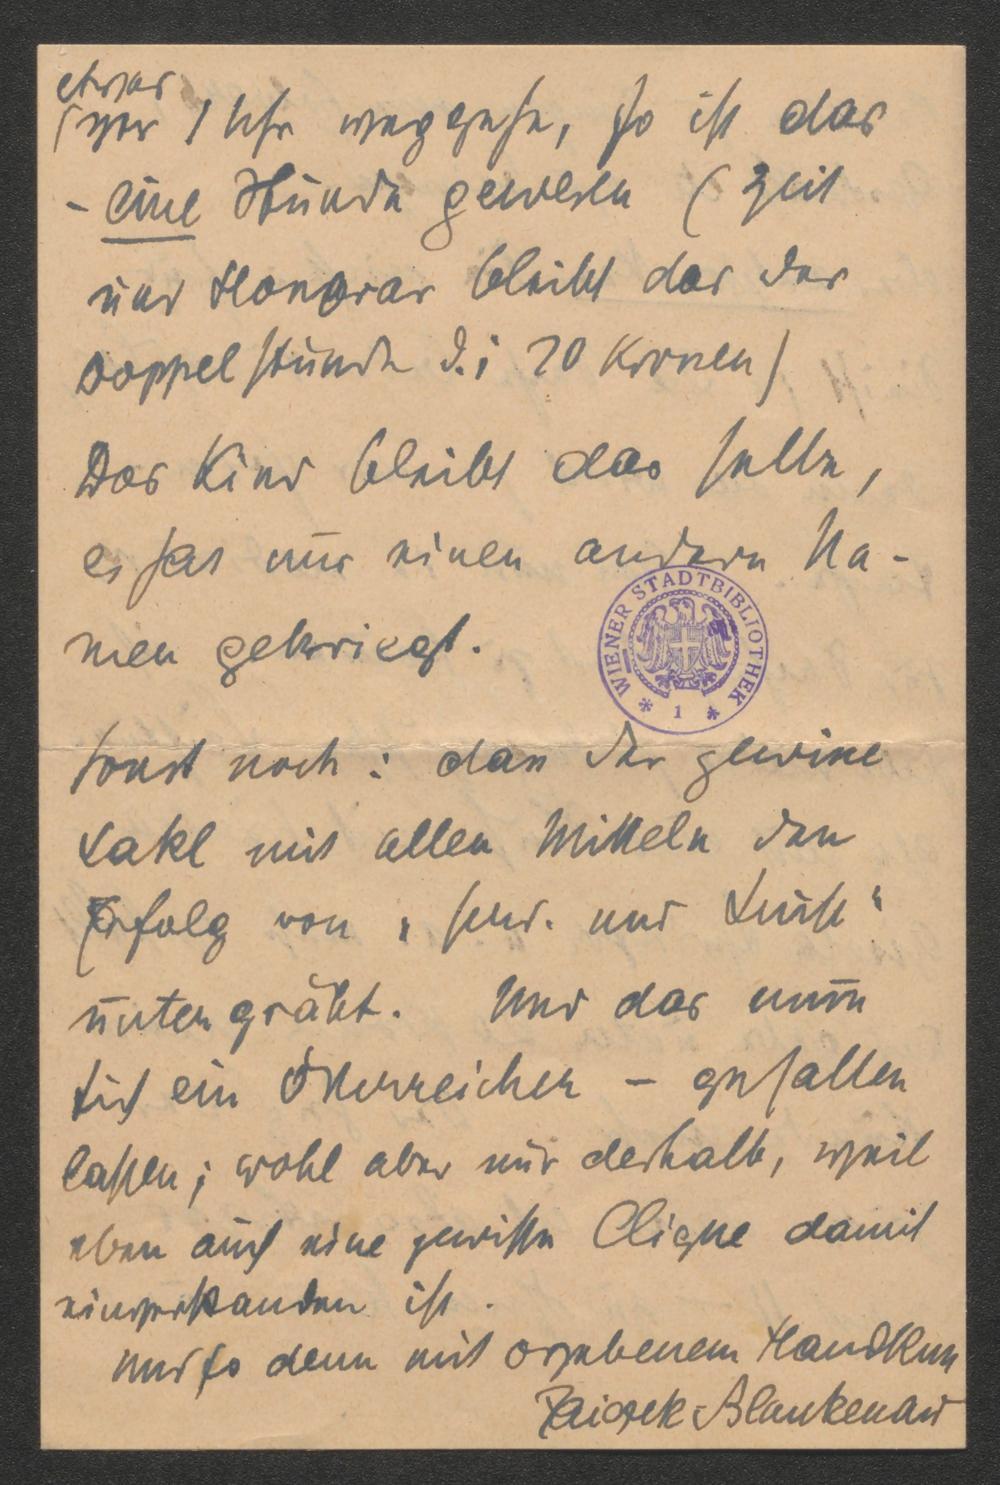 etwas
(vor 1 Uhr weggehe, so ist das
- eine Stunde gewesen (Zeit
und Honorar bleibt das der
Doppelstunde d.i 20 Kronen)
Das Kind bleibt das selbe,
es hat nur einen andern Na-
men gekriegt.
WIENER STADTBIBLIOTHEK
* 1 *
Sonst noch: dass der gewisse
Lakl mit allen Mitteln den
Erfolg von „ und "
untergräbt. Und das muss
sich ein Österreicher - gefallen
lassen; wohl aber nur deshalb, weil
eben auch eine gewisse Clique damit
einverstanden ist.
Und so denn mit ergebenem Handkuss
Blankenau